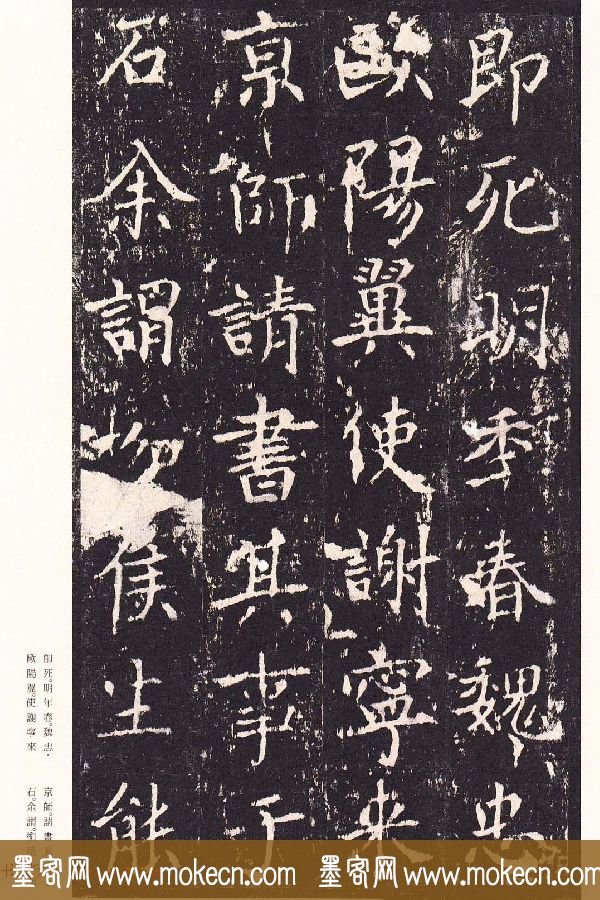 即死明年春魏忠
歐陽翼使謝寧來
京師請書其事于
石余謂柳侯生能
卽死。明年春。魏忠·
歐陽翼。使謝寧來
京師。請書其
石。余謂。柳
墨客网 www.mokecn.com 墨客网 www.mokecn.com